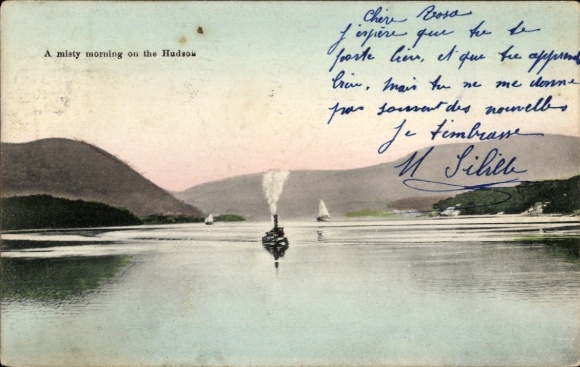 A misty morning on the Hudson
Chère Rosa
j'espère que tu te
porte bien, et que tu apprend
bien, mais tu ne me donne
pas souvent des nouvelles
Je t'embrasse
M